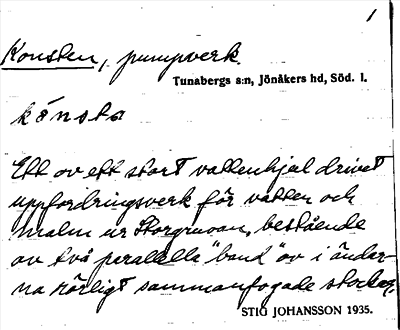 1
Konsten, pumpverk.
Tunabergs s:n, Jönåkers hd, Söd. l.
kónsta
Ett av ett stort vattenhjul drivet
uppfordringsverk för vatten och
malm ur Storgruvan, bestående
av två parallella "band" av i ändar-
na rörligt sammanfogade stockar.
STIG JOHANSSON 1935.